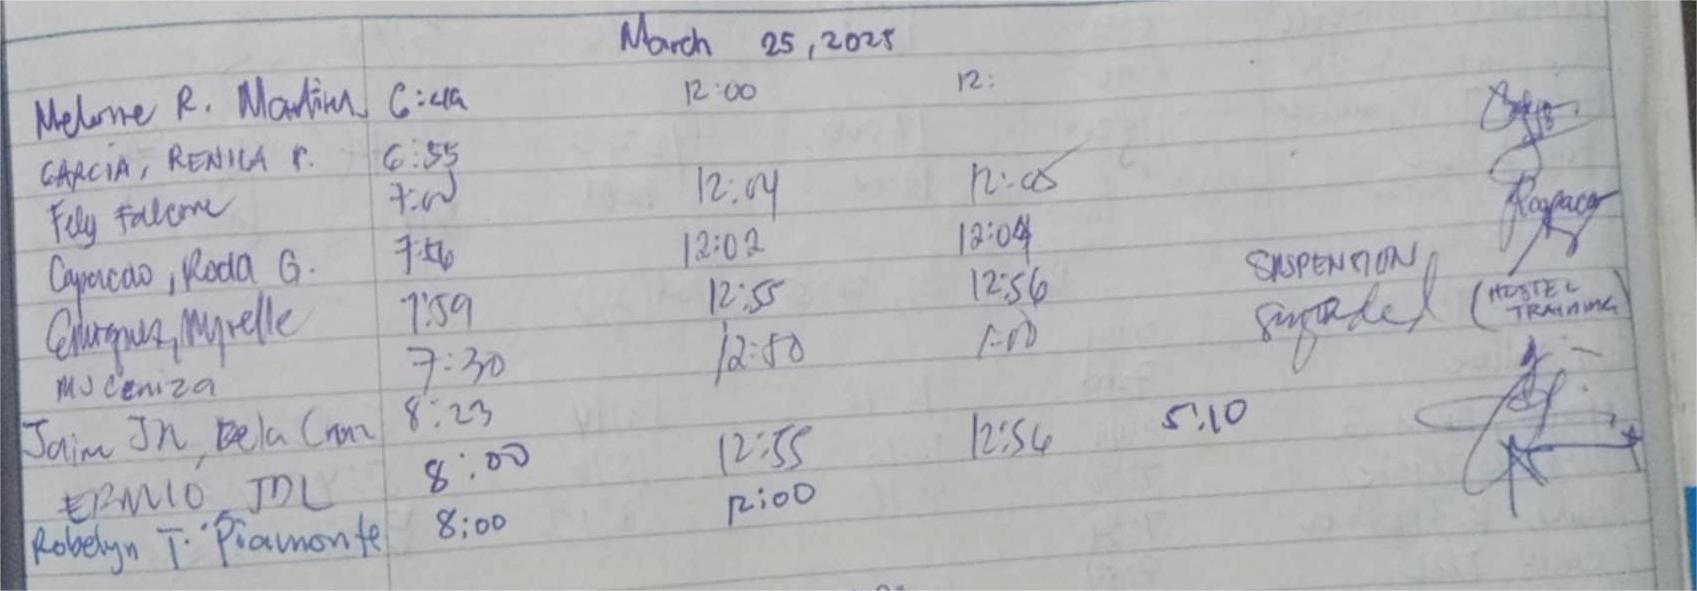 March 25, 2025
R. 6:49 12:00 12:
GARCIA, RENILA P. 6:55
Fely Falcone 7:00 12:04 12:05
Capacao, Roda G. 7:56 12:02 12:04
Myrelle 7:59 12:55 12:56 SUSPENTION (HOSTEL TRAINING)
MJ Ceniza 7:30 12:50 1:00
Jaim Jn, Dela Cruz 8:23
JDL 8:00 12:55 12:56 5:10
Robelyn T. Piamonte 8:00 12:00